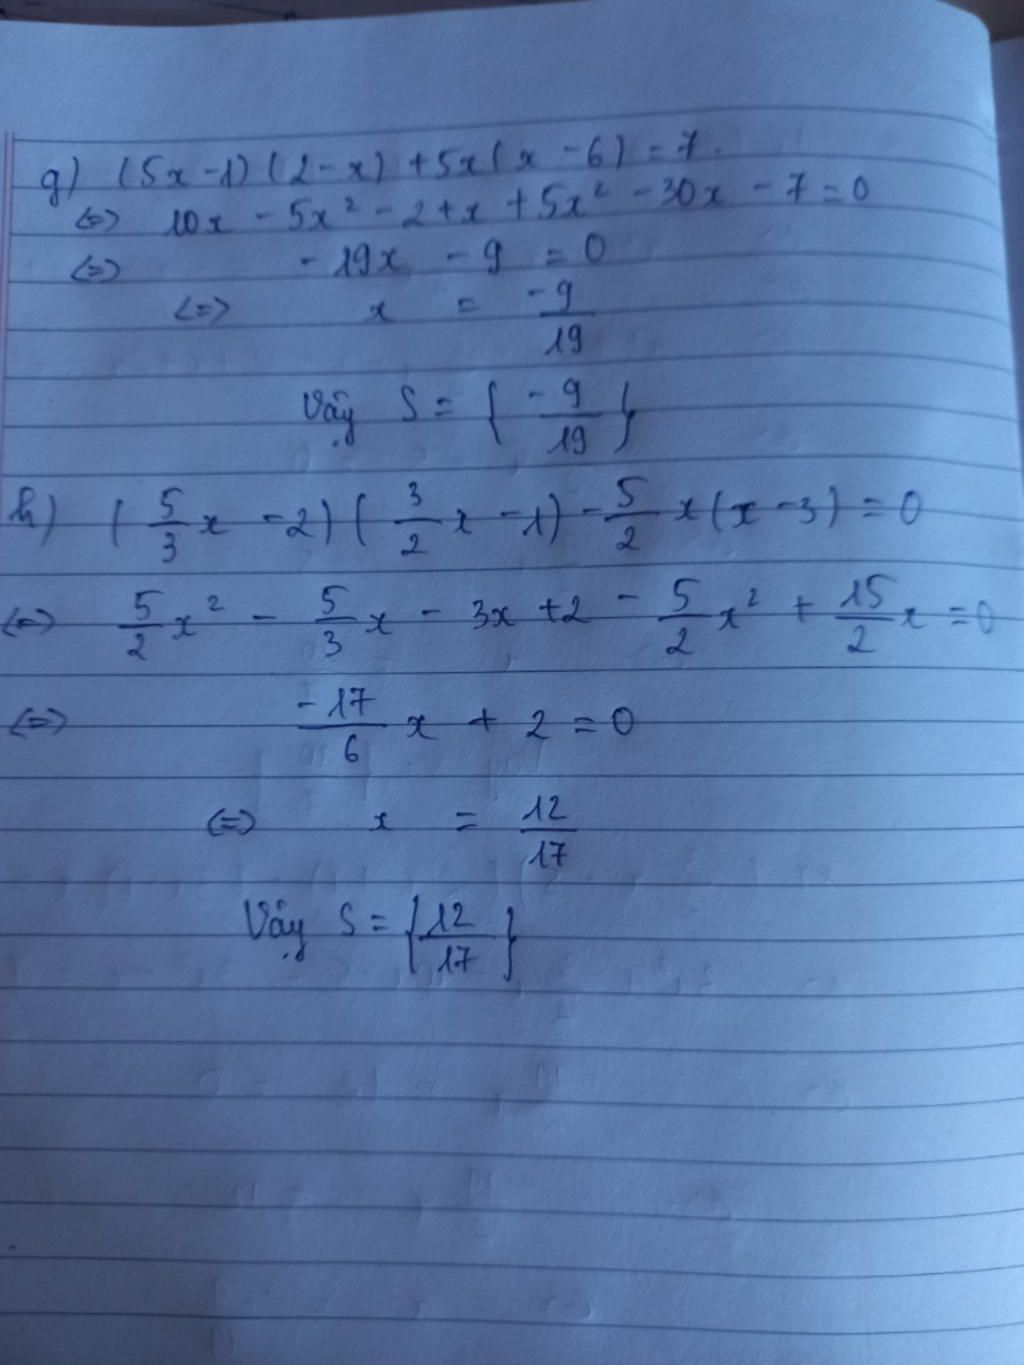 g) (5x - 1)(2 - x) + 5x(x - 6) = 7.
<=> 10x - 5x² - 2 + x + 5x² - 30x - 7 = 0
<=> - 19x - 9 = 0
<=> x = -9/19
Vậy S = { -9/19 }
h) (5/3 x - 2)(3/2 x - 1) - 5/2 x(x - 3) = 0
<=> 5/2 x² - 5/3 x - 3x + 2 - 5/2 x² + 15/2 x = 0
<=> -17/6 x + 2 = 0
<=> x = 12/17
Vậy S = { 12/17 }